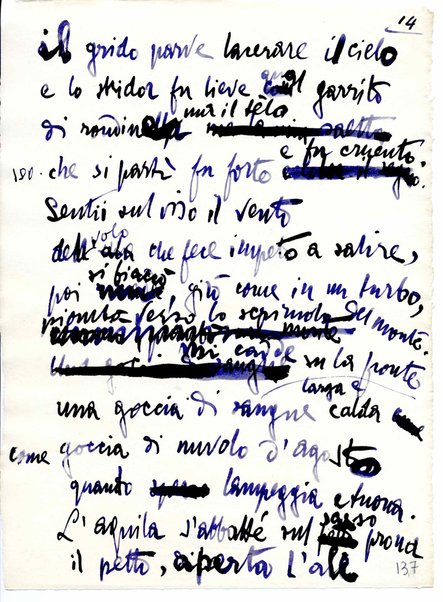 14
il grido parve lacerare il cielo
e lo stridor fu lieve qual garrito
di rondinella ma il tèlo
180. che si partì fu forte e fu cruento.
Sentii sul viso il vento
dell'volo che fece impeto a salire,
poi si piacciò, giù come in un turbo,
piombò verso lo scrimolo del monte.
Mi cadde su la fronte
una goccia di sangue larga e calda
come goccia di nuvolo d'agosto
quando lampeggia e tuona.
L'aquila s'abbatté sul sasso prona
il petto, aperta l'ale
137